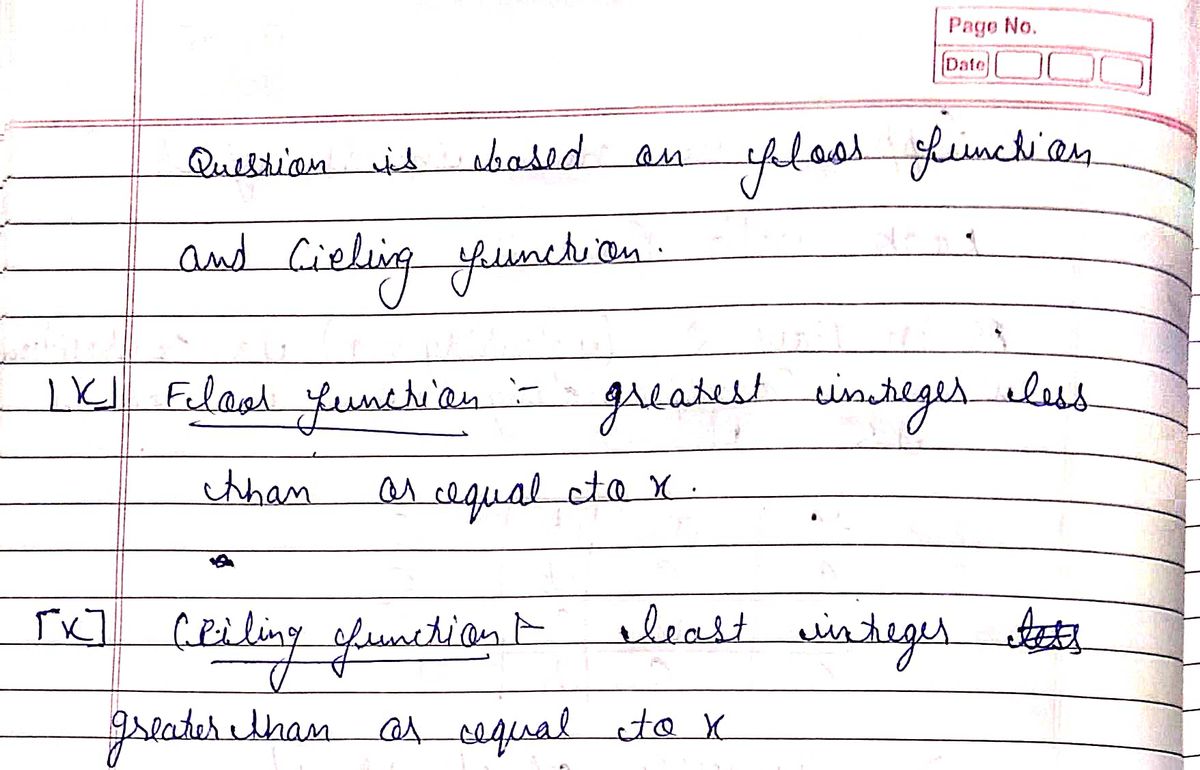 Page No.
Date
Question is based on floor function
and Cieling function.
⌊x⌋ Floor function :- greatest integer less
than or equal to x.
⌈x⌉ Ceiling function :- least integer
greater than or equal to x